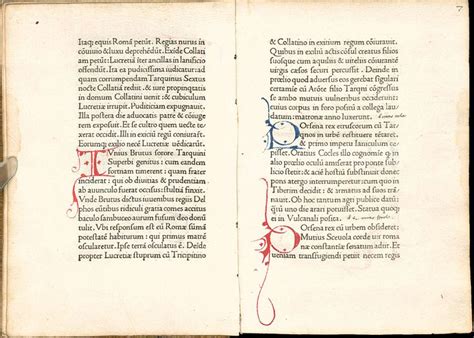 Itaq; equis Romã petũt. Regias nurus in
cõuiuio & luxu deprehẽdũt. Exide Collati
am petũt: Lucretiã iter ancillas in lanificio
offendũt. Ita ea pudicissima iudicatur: ad
quam corrumpendam Tarquinus Sextus
nocte Collatiã rediit. & iure propinqtatis
in domum Collatini uenit: & cubiculum
Lucretiæ irrupit. Pudicitiam expugnauit.
Illa postera die aduocatis patre & cõiuge
rem exposuit. Et se cultro quem ueste te
xerat occidit. Illi in exitiũ regũ cõiurarũt.
Eorumq; exilio necẽ Lucretiæ uẽdicarũt.
IVnius Brutus sorore Tarquini
Superbi genitus: cum eandem
formam timerent: quam frater
inciderat: qui ob diuitias & prudentiam
ab auunculo fuerat occisus: stultũ finxit.
Vnde Brutus dictus iuuenibus regis Del
phos eũtibus ridiculi gratia comes ascitus
baculo sambuceo aurum fusum deo donũ
tulit. Vbi respõsum est eũ Romæ sũmã
potestatẽ habiturũ: qui primus matrẽ
oscularetur. Ipse terrã osculatus ẽ. Deinde
propter Lucretiæ stuprum cũ Tricipitino
7
& Collatino in exitium regum cõiurauit.
Quibus in exiliũ actis: cõsul creatus filios
suos quoque cum aquiliis & uitelis cõiurassẽt
uirgis cæsos securi percussit. Deinde in
prælio quod aduersus eos gerebat siguları
certamie cũ Arõte filio Tarqni cõgressus
se ambo mutuis uulneribus occiderunt:
cuius corpus in foro positũ a collega lau
datum: matronæ anno luxerunt.
POrsena rex etruscorum cũ Tar
Qnios in urbẽ restituere tẽptaret:
& primo impetu Ianiculum ce
pisset. Oratius Cocles illo cognomine q
in alio prælio oculũ amiserat pro ponte
sublicio stetit: & aciẽ hostiũ solus sustinuit
donec pons a tergo interrũperetur: cum
Tiberim decidit: & armatus ad suos
tranauit. Ob hoc tantum agri publici datũ:
quãtũ uno die arari potuisset. Statua quoq;
ei in Vulcanali posita.
POrsena rex cũ urbem obsideret:
Mutius Sceuola corde uir roma
næ constantiæ senatum adit. Et
ueniam transfugiendi petiit necem regis